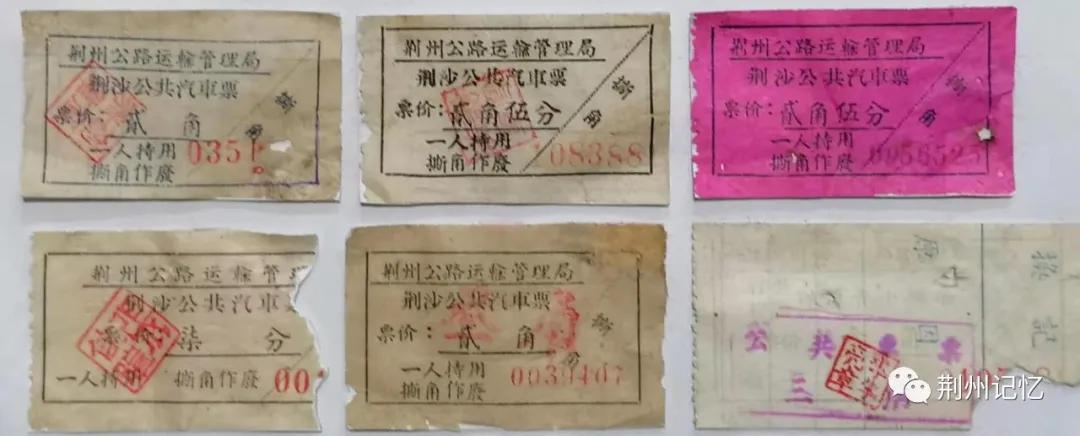 荆州公路运輸管理局
荆沙公共汽車票
票价：貳角
一人持用
撕角作廢
0351
撕角
荆州公路运輸管理局
荆沙公共汽車票
票价：貳角伍分
一人持用
撕角作廢
08388
撕角
荆州公路运輸管理局
荆沙公共汽車票
票价：貳角伍分
一人持用
撕角作廢
撕角
荆州公路运輸管理
荆沙公共汽車票
票价柒分
一人持用 撕角作廢
00
荆州公路运輸管理局
荆沙公共汽車票
票价：貳角
一人持用
撕角作廢
撕角
公共
票
三
荆州记忆